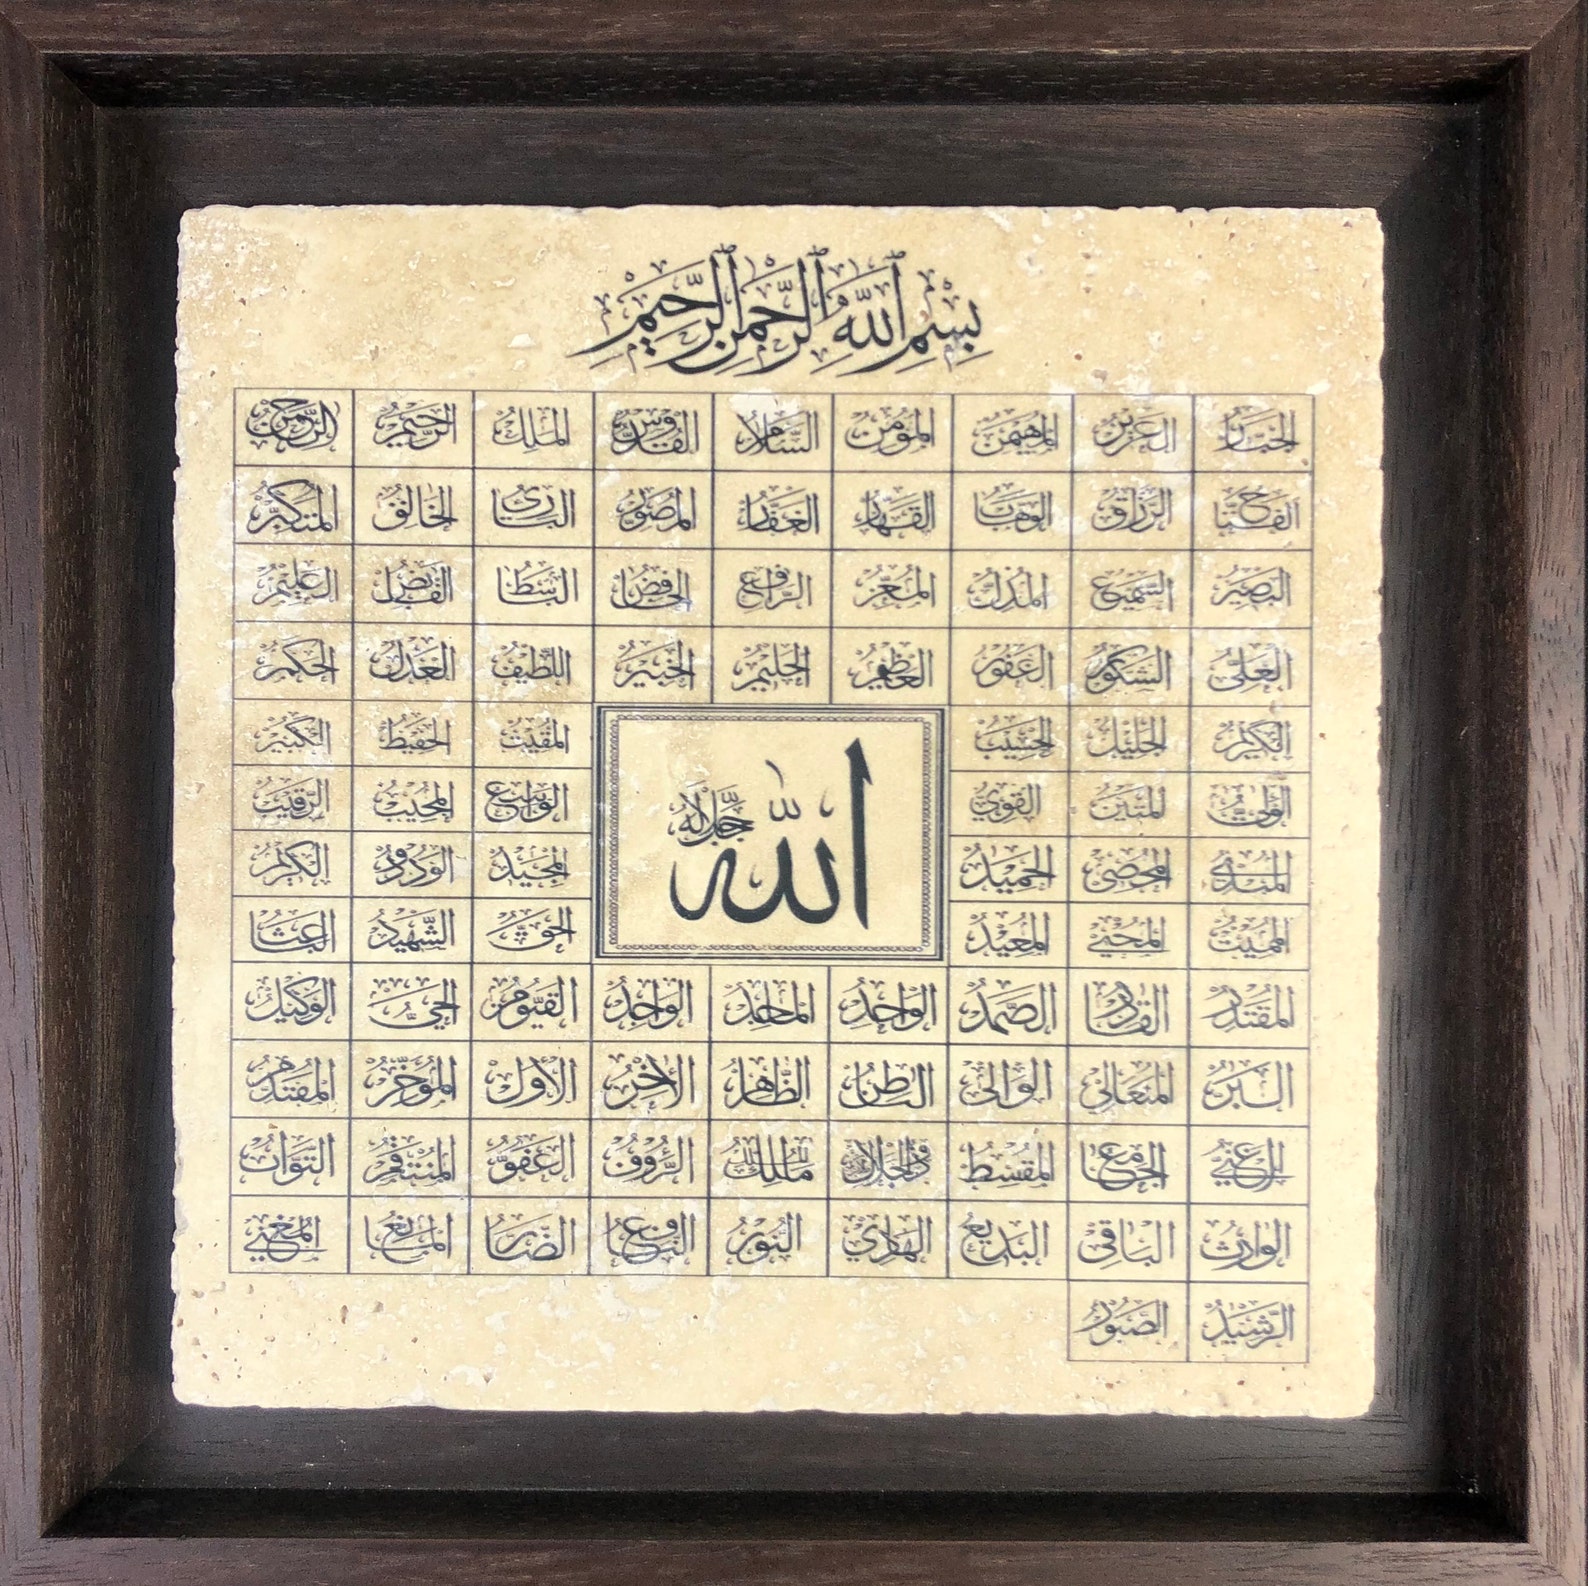 بِسْمِ ٱللَّهِ ٱلرَّحْمَٰنِ ٱلرَّحِيمِ
الجبار العزيز المهيمن المؤمن السلام القدوس الملك الرحيم الرحمن
الفتاح الرزاق الوهاب القهار الغفار المصور البارئ الخالق المتكبر
البصير السميع المذل المعز الرافع الخافض الباسط القابض العليم
العلي الشكور الغفور العظيم الحليم الخبير اللطيف العدل الحكم
الكريم الجليل الحسيب المقيت الحفيظ الكبير
المتين القوي الواسع المجيب الرقيب
الله جل جلاله
المبدئ المحصي الحميد المجيد الودود
المميت المحيي المعيد الحق الشهيد الباعث
المقتدر القادر الصمد الواحد الماجد الواجد القيوم الحي الوكيل
البر المتعالي الوالي الباطن الظاهر الآخر الأول المؤخر
الغني الجامع المقسط ذو الجلال مالك الملك الرؤوف العفو المنتقم التواب
الوارث الباقي البديع الهادي النور النافع الضار المانع المغني
الرشيد الصبور